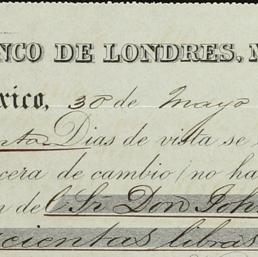 NCO DE LONDRES, M
xico, 30 de Mayo
nta Dias de vista se
cera de cambio (no ha
n del Sr. Don Joh
cientas libras